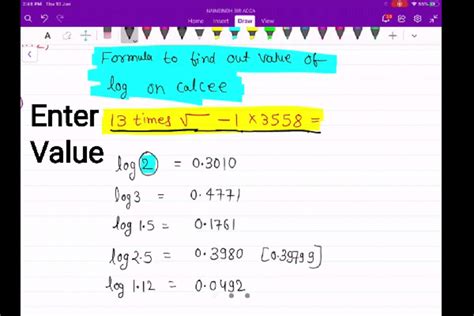 2:48 PM Thu 10 Jun
NARNDINDH SIR ACCA
Home Insert Draw View
Formula to find out value of
log on calcee
Enter
13 times √ − 1 × 3558 =
Value
log 2 = 0.3010
log 3 = 0.4771
log 1.5 = 0.1761
log 2.5 = 0.3980 [0.39799]
log 1.12 = 0.0492